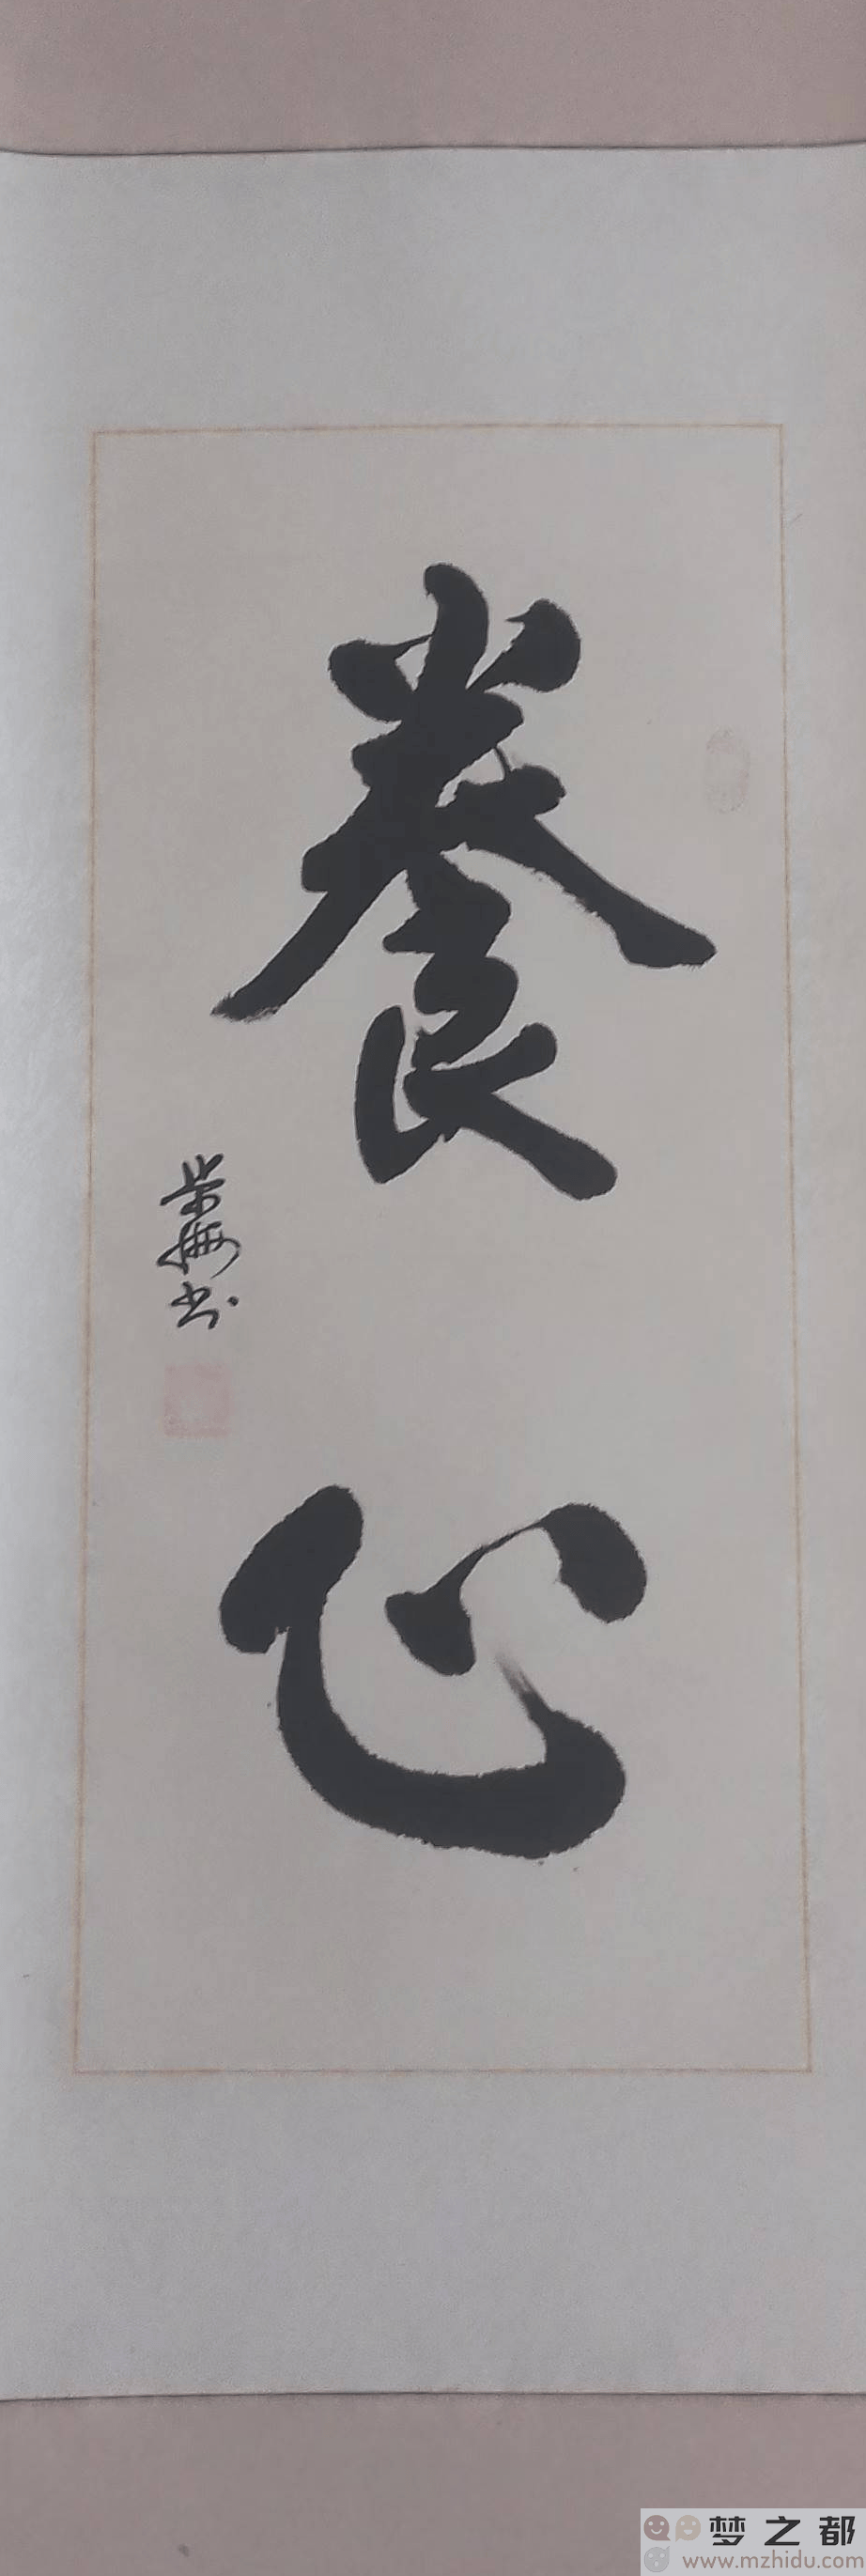 養心
梦之都
www.mzhidu.com